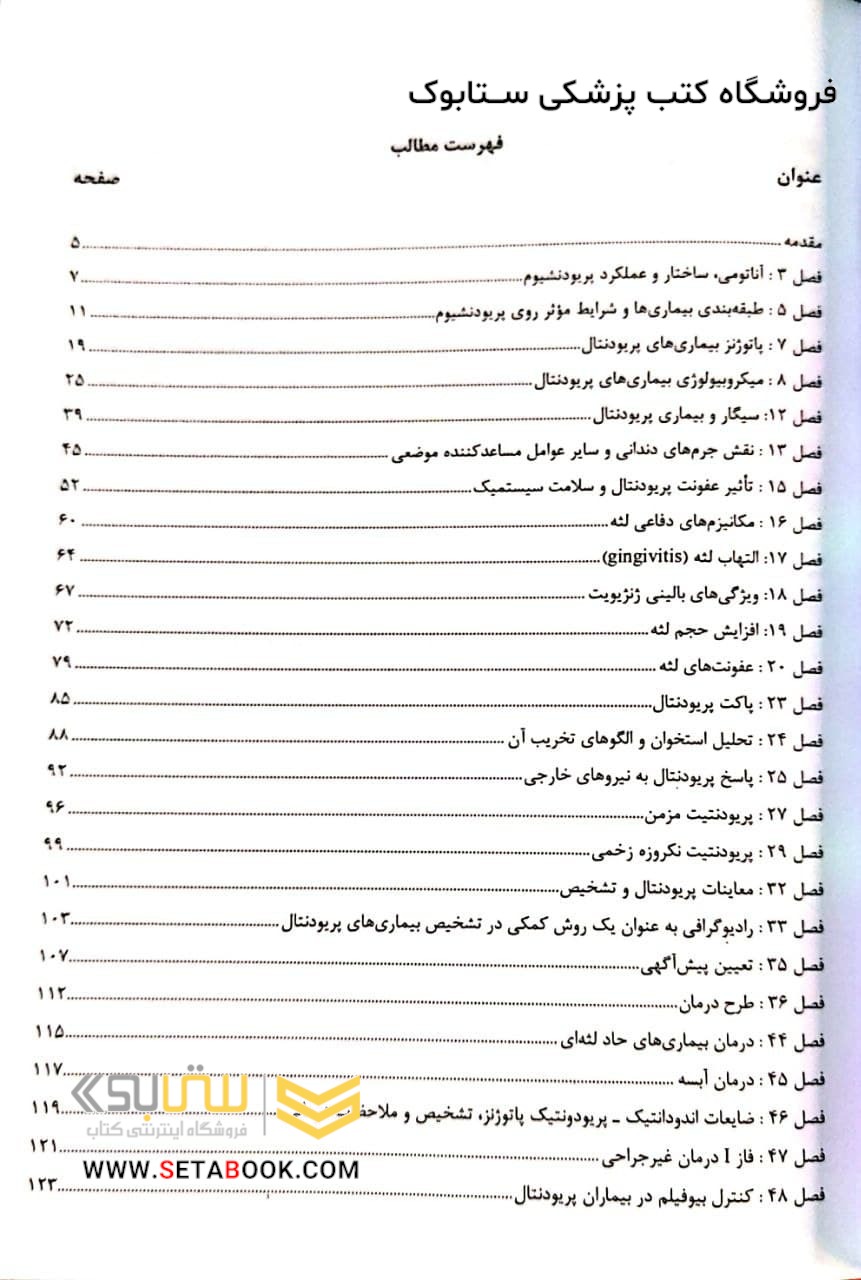 فروشگاه کتب پزشکی ستابوک
فهرست مطالب
عنوان صفحه
مقدمه ۵
فصل ۳ : آناتومی، ساختار و عملکرد پریودنشیوم ۷
فصل ۵ : طبقه‌بندی بیماری‌ها و شرایط مؤثر روی پریودنشیوم ۱۱
فصل ۷ : پاتوژنز بیماری‌های پریودنتال ۱۹
فصل ۸ : میکروبیولوژی بیماری‌های پریودنتال ۲۵
فصل ۱۲: سیگار و بیماری پریودنتال ۳۹
فصل ۱۳ : نقش جرم‌های دندانی و سایر عوامل مساعدکننده موضعی ۴۵
فصل ۱۵ : تأثیر عفونت پریودنتال و سلامت سیستمیک ۵۲
فصل ۱۶ : مکانیزم‌های دفاعی لثه ۶۰
فصل ۱۷: التهاب لثه (gingivitis) ۶۴
فصل ۱۸: ویژگی‌های بالینی ژنژیویت ۶۷
فصل ۱۹: افزایش حجم لثه ۷۲
فصل ۲۰ : عفونت‌های لثه ۷۹
فصل ۲۳ : پاکت پریودنتال ۸۵
فصل ۲۴ : تحلیل استخوان و الگوهای تخریب آن ۸۸
فصل ۲۵ : پاسخ پریودنتال به نیروهای خارجی ۹۲
فصل ۲۷ : پریودنتیت مزمن ۹۶
فصل ۲۹ : پریودنتیت نکروزه زخمی ۹۹
فصل ۳۲ : معاینات پریودنتال و تشخیص ۱۰۱
فصل ۳۳ : رادیوگرافی به عنوان یک روش کمکی در تشخیص بیماری‌های پریودنتال ۱۰۳
فصل ۳۵ : تعیین پیش‌آگهی ۱۰۷
فصل ۳۶ : طرح درمان ۱۱۲
فصل ۴۴ : درمان بیماری‌های حاد لثه‌ای ۱۱۵
فصل ۴۵ : درمان آبسه ۱۱۷
فصل ۴۶ : ضایعات اندودانتیک ـ پریودونتیک پاتوژنز، تشخیص و ۱۱۹
فصل ۴۷ : فاز I درمان غیرجراحی ۱۲۱
فصل ۴۸ : کنترل بیوفیلم در بیماران پریودنتال ۱۲۳
ستابوک
فروشگاه اینترنتی کتاب
WWW.SETABOOK.COM